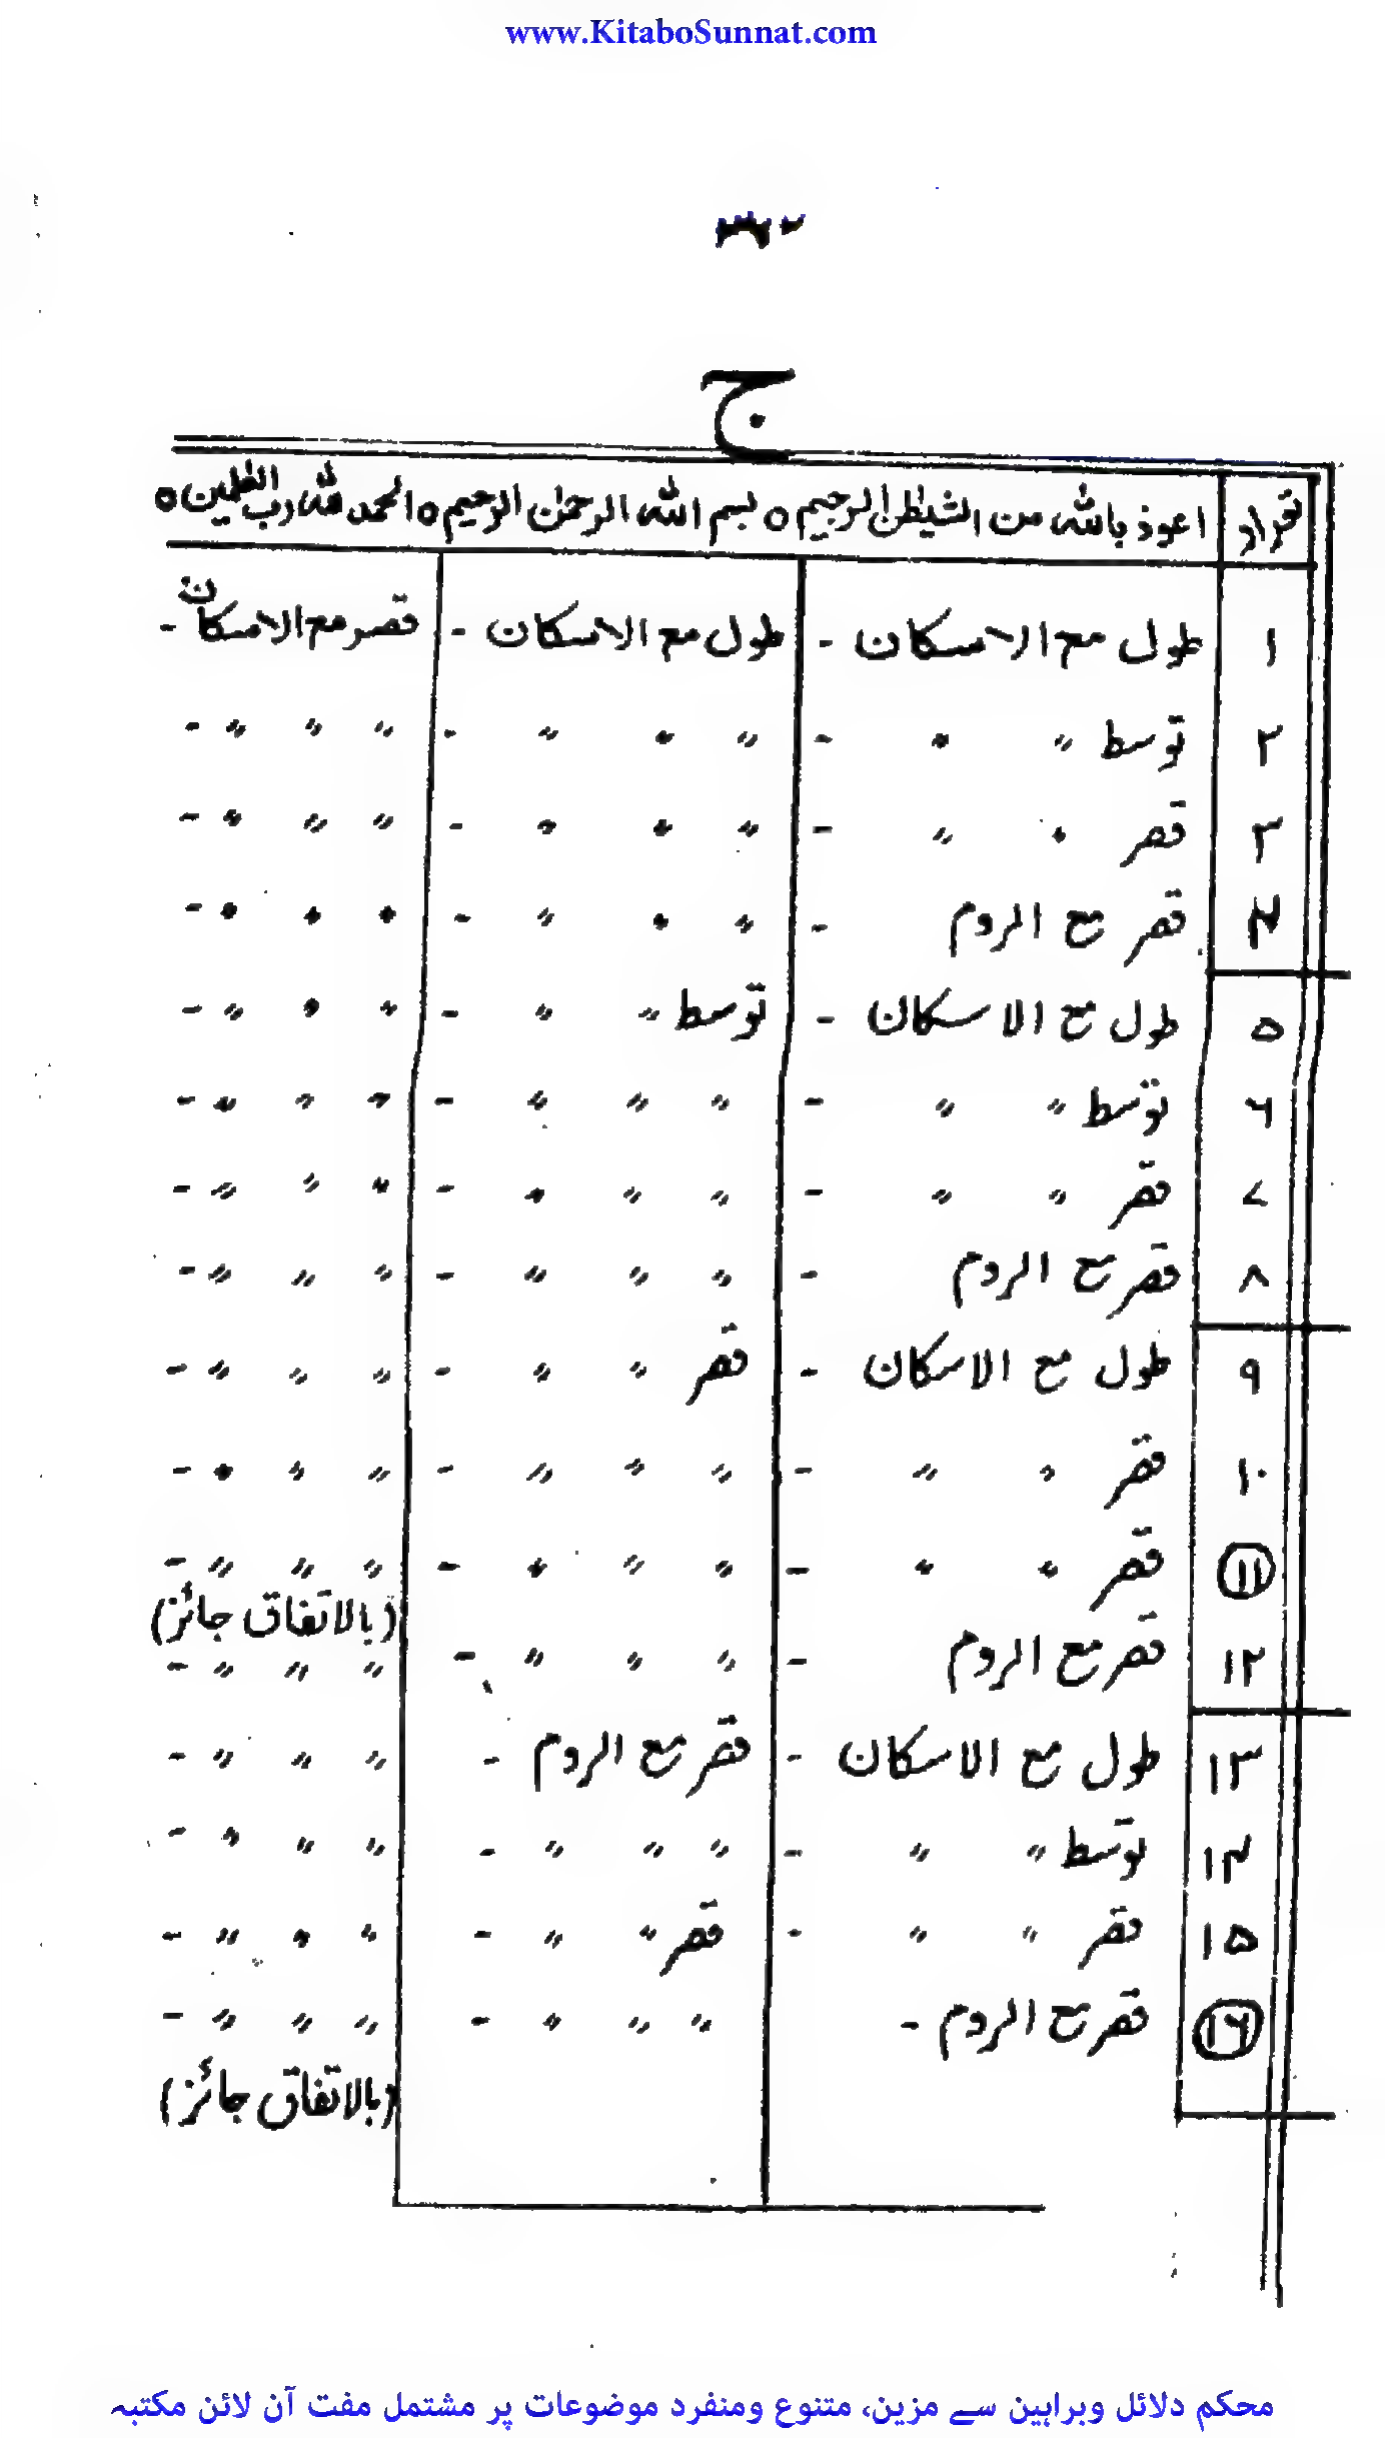 www.KitaboSunnat.com
ج
تعداد اعوذ باللہ من الشیطٰن الرجیم ○ بسم اللہ الرحمٰن الرحیم ○ الحمد للہ رب العٰلمین ○
۱ طول مع الاسکان - طول مع الاسکان - قصر مع الاسکان -
۲ توسط 〃 〃 - 〃 〃 〃 - 〃 〃 〃 -
۳ قصر 〃 〃 - 〃 〃 〃 - 〃 〃 〃 -
۴ قصر مع الروم - 〃 〃 〃 - 〃 〃 〃 -
۵ طول مع الاسکان - توسط 〃 〃 - 〃 〃 〃 -
۶ توسط 〃 〃 - 〃 〃 〃 - 〃 〃 〃 -
۷ قصر 〃 〃 - 〃 〃 〃 - 〃 〃 〃 -
۸ قصر مع الروم - 〃 〃 〃 - 〃 〃 〃 -
۹ طول مع الاسکان - قصر 〃 〃 - 〃 〃 〃 -
۱۰ قصر 〃 〃 - 〃 〃 〃 - 〃 〃 〃 -
۱۱ قصر 〃 〃 - 〃 〃 〃 - 〃 〃 〃 -
(بالاتفاق جائز)
۱۲ قصر مع الروم - 〃 〃 〃 - 〃 〃 〃 -
۱۳ طول مع الاسکان - قصر مع الروم - 〃 〃 〃 -
۱۴ توسط 〃 〃 - 〃 〃 〃 - 〃 〃 〃 -
۱۵ قصر 〃 〃 - قصر 〃 〃 - 〃 〃 〃 -
۱۶ قصر مع الروم - 〃 〃 〃 - 〃 〃 〃 -
(بالاتفاق جائز)
محکم دلائل وبراہین سے مزین، متنوع ومنفرد موضوعات پر مشتمل مفت آن لائن مکتبہ